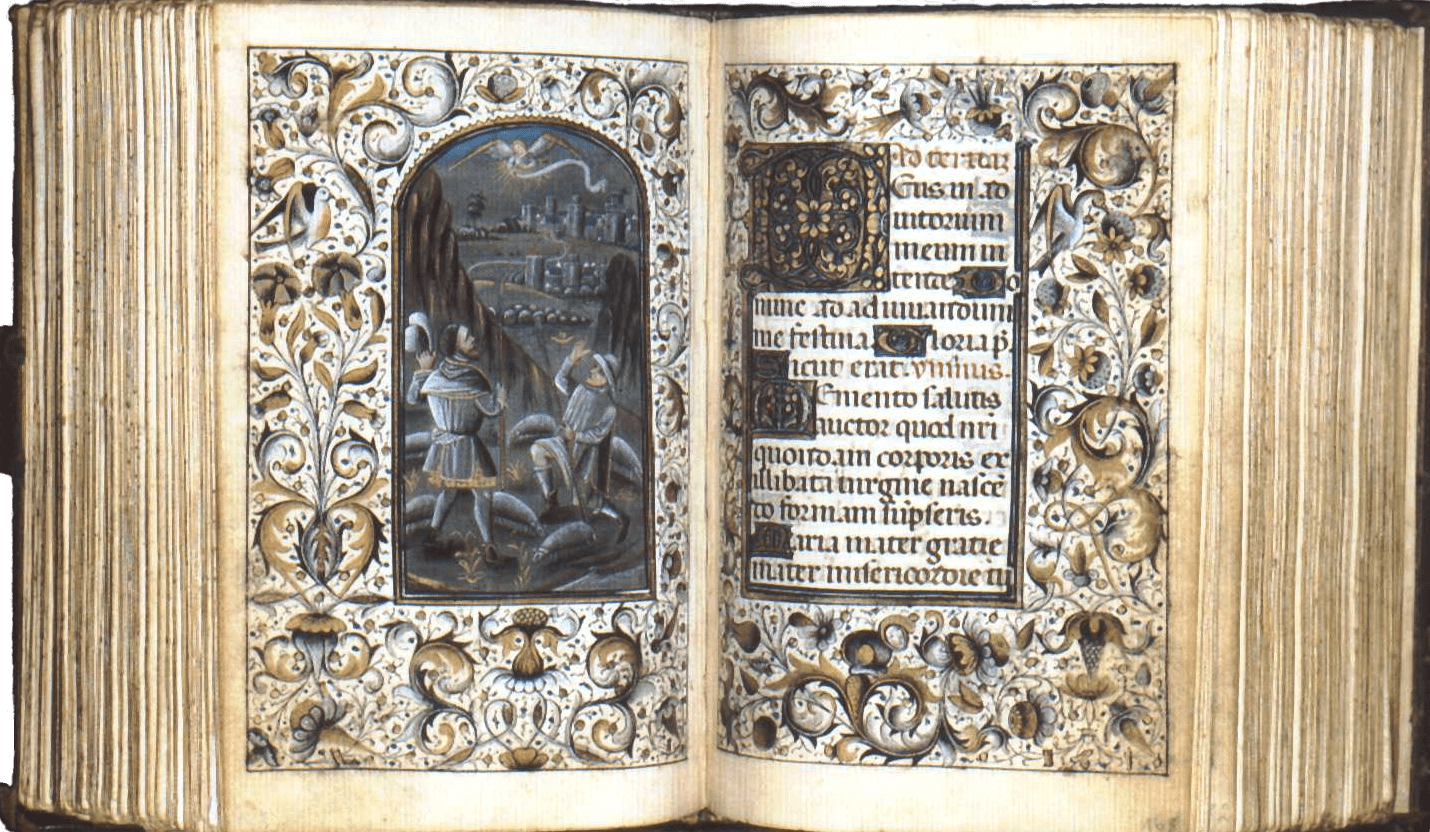 Ad tertiaz
Eus in ad
iutorium
meum in
tende. Do
mine ad adiuuandum
me festina. Gloria p̄.
Sicut erat. ympnus.
Memento salutis
auctor quod nr̄i
quondam corporis ex
illibata uirgine nascē
do formam sūpseris.
Maria mater gratie
mater misericordie tu